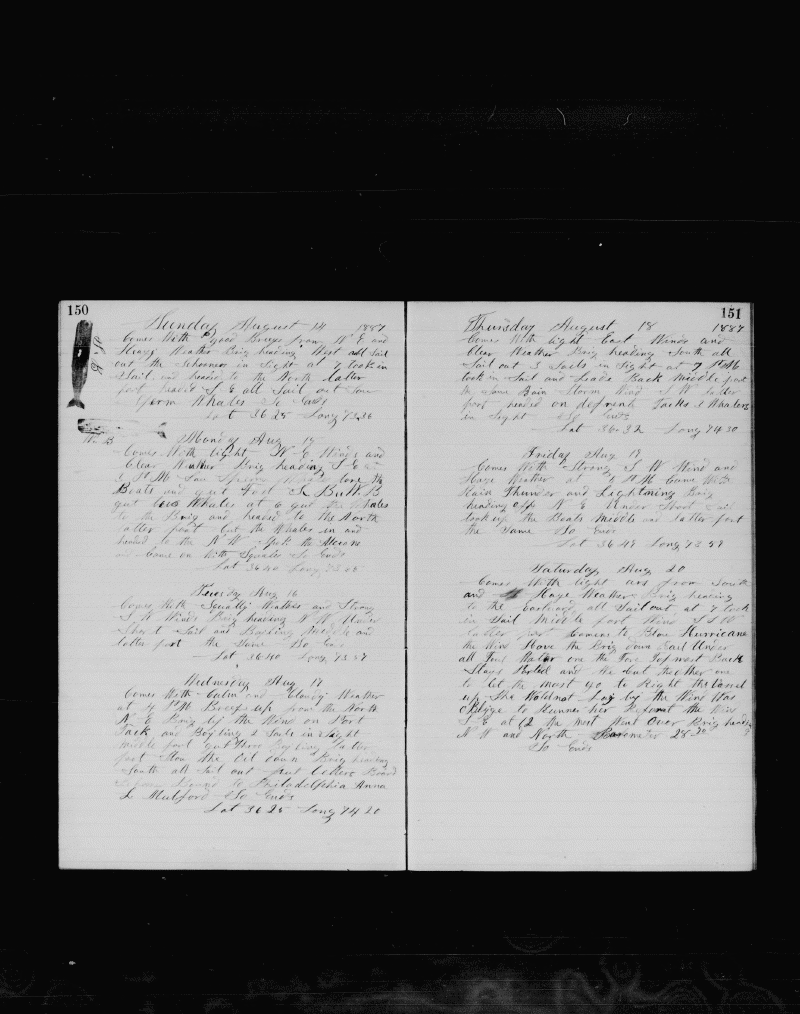 150
Sunday August 14 1887
Comes With good Breeze from N E and
Heavy Weather Brig heading West all Sail
out the Schooner in Sight at 7 took in
Sail and headed to the North latter
part headed S E all Sail out Saw
Sperm Whales So Ends
Lat 36 25 Long 73 36
W B
Monday Aug 15
Comes With light N E Winds and
Clear Weather Brig heading S E at
3 P M Saw Sperm Whales lore the
Boats and got Fast S B W B
got Whales at 6 got the Whales
to the Brig and headed to the North
latter part Cut the Whales in and
headed to the N W Spoke the
and Came on With Squales So Ends
Lat 36 40 Long
Tuesday Aug 16
Comes With Squally Weather and Strong
S W Winds Brig heading N W Under
Short Sail and Boyling Middle and
latter part the Same So Ends
Lat 36 40 Long 73 57
Wednesday Aug 17
Comes With Calm and Cloudy Weather
at 4 P M Breeze up from the North
N E Brig by the Wind on Port
Tack and Boyling 2 Sails in Sight
Middle part got threw Boyling latter
part Stow the Oil down Brig heading
South all Sail out put letters Board
Bound to Philadelphia Anna
L Mulford So Ends
Lat 36 25 Long 74 20
151
Thursday August 18 1887
Comes With light East Winds and
Clear Weather Brig heading South all
Sail out 3 Sails in Sight at 7 P M
took in Sail and Leads Back Middle part
Rain Storm Wind S W latter
part headed on defrent Tacks 3 Whalers
in Sight So Ends
Lat 36 32 Long 74 30
Friday Aug 19
Comes With Strong S W Wind and
Haze Weather at 5 P M Came With
Rain Thunder and Lightning Brig
heading off N E Under Short Sail
took up the Boats Middle and latter part
the Same So Ends
Lat 36 49 Long 73 59
Saturday Aug 20
Comes With light airs from South
and Haze Weather Brig heading
to the Eastward all Sail out at 7 took
in Sail Middle part Wind S S W
latter part Comes to Blow Hurricane
the Wind Hove the Brig down Sail Under
all Foul Water one the Fore Topmost Back
Stays Parted and We Cut the other one
to let the mast go to Right the Vessel
up She Wouldnot Lay by the Wind Was
Oblige to Runner her Before the Wind
S E at 12 the most Went Over Brig heading
N W and North Barometer 28
So Ends